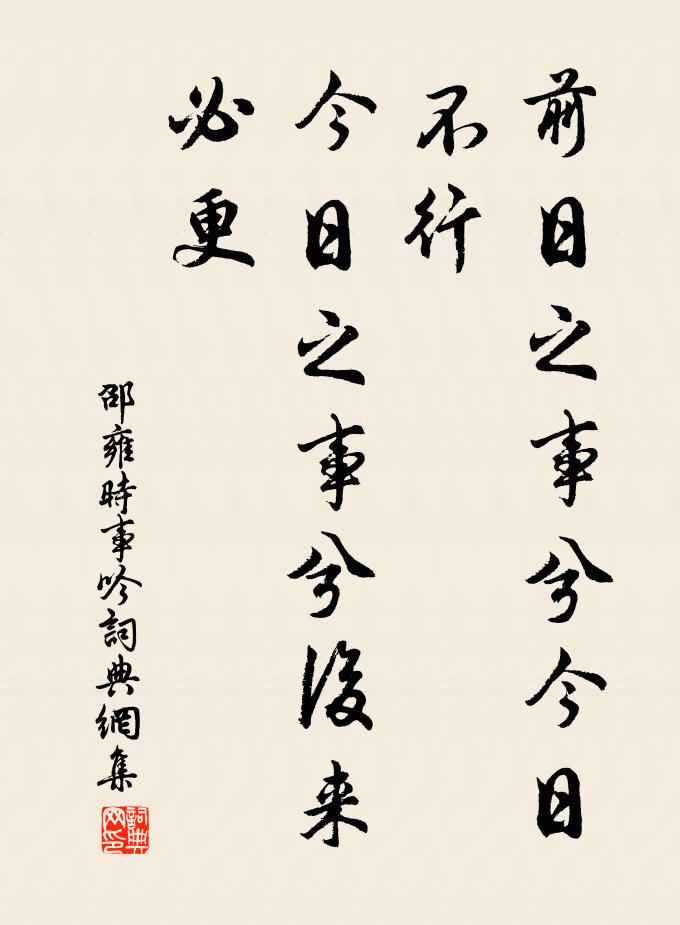 前日之事兮今日
不行
今日之事兮後来
必更
邵雍時事吟詞典網集
詞典
网印